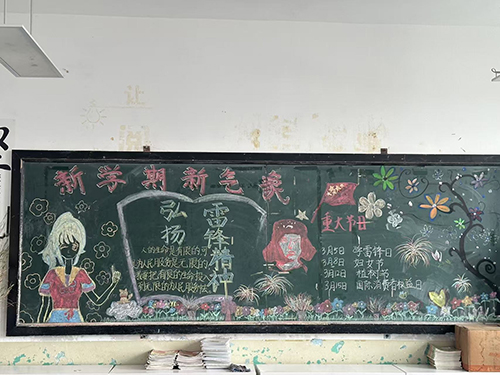 新学期新气象
弘扬
雷锋精神
人的生命是有限的可
为人民服务是无限的
我要把有限的生命投入
到无限的为人民服务
重大节日
3月5日 学雷锋日
3月8日 妇女节
3月12日 植树节
3月15日 国际消费者权益日
让